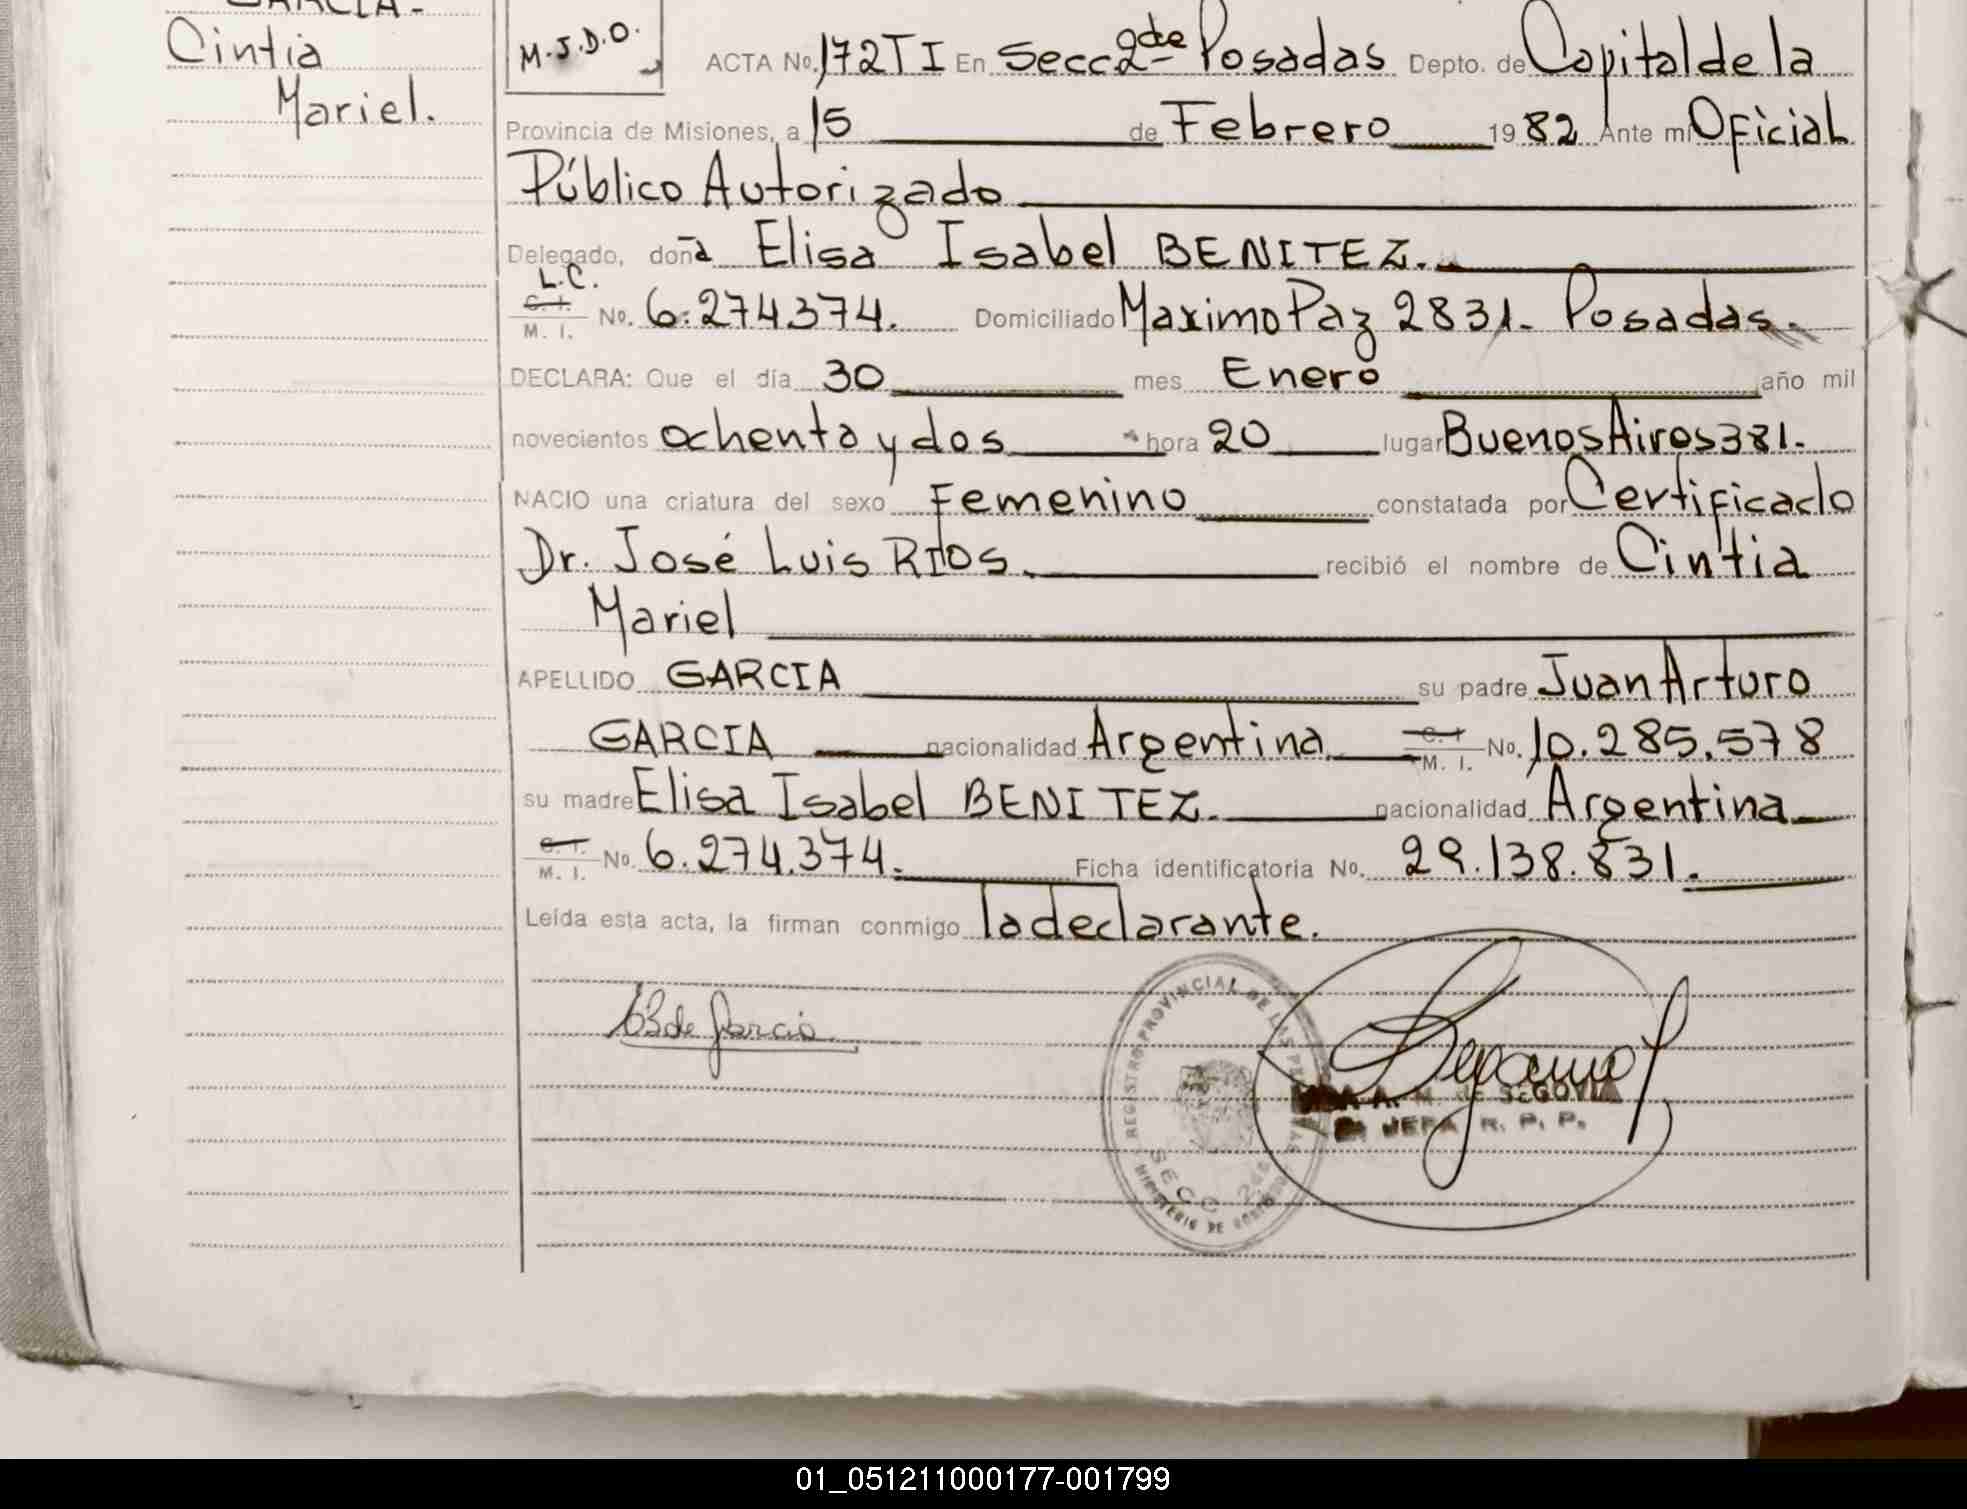 GARCIA-
Cintia
Mariel.
M.J.D.O.
ACTA No. 172TI En Secc 2de Posadas Depto. de Capital de la
Provincia de Misiones, a 15 de Febrero 1982 Ante mi Oficial
Público Autorizado
Delegado, doña Elisa Isabel BENITEZ.
L.C.
C. I.
M. I. No. 6.274374. Domiciliado Maximo Paz 2831. Posadas.
DECLARA: Que el día 30 mes Enero año mil
novecientos ochenta y dos hora 20 lugar Buenos Aires 381.
NACIO una criatura del sexo Femenino constatada por Certificado
Dr. José Luis RIOS. recibió el nombre de Cintia
Mariel
APELLIDO GARCIA su padre Juan Arturo
GARCIA nacionalidad Argentina C. I. M. I. No. 10.285.578
su madre Elisa Isabel BENITEZ. nacionalidad Argentina
C. I. M. I. No. 6.274.374. Ficha identificatoria No. 29.138.831.
Leída esta acta, la firman conmigo la declarante.
B de Garcia
REGISTRO PROVINCIAL DE LAS PERSONAS
SECC 2da
MINISTERIO DE GOBIERNO
A. M. de SEGOVIA
JEFA R. P. P.
01_051211000177-001799